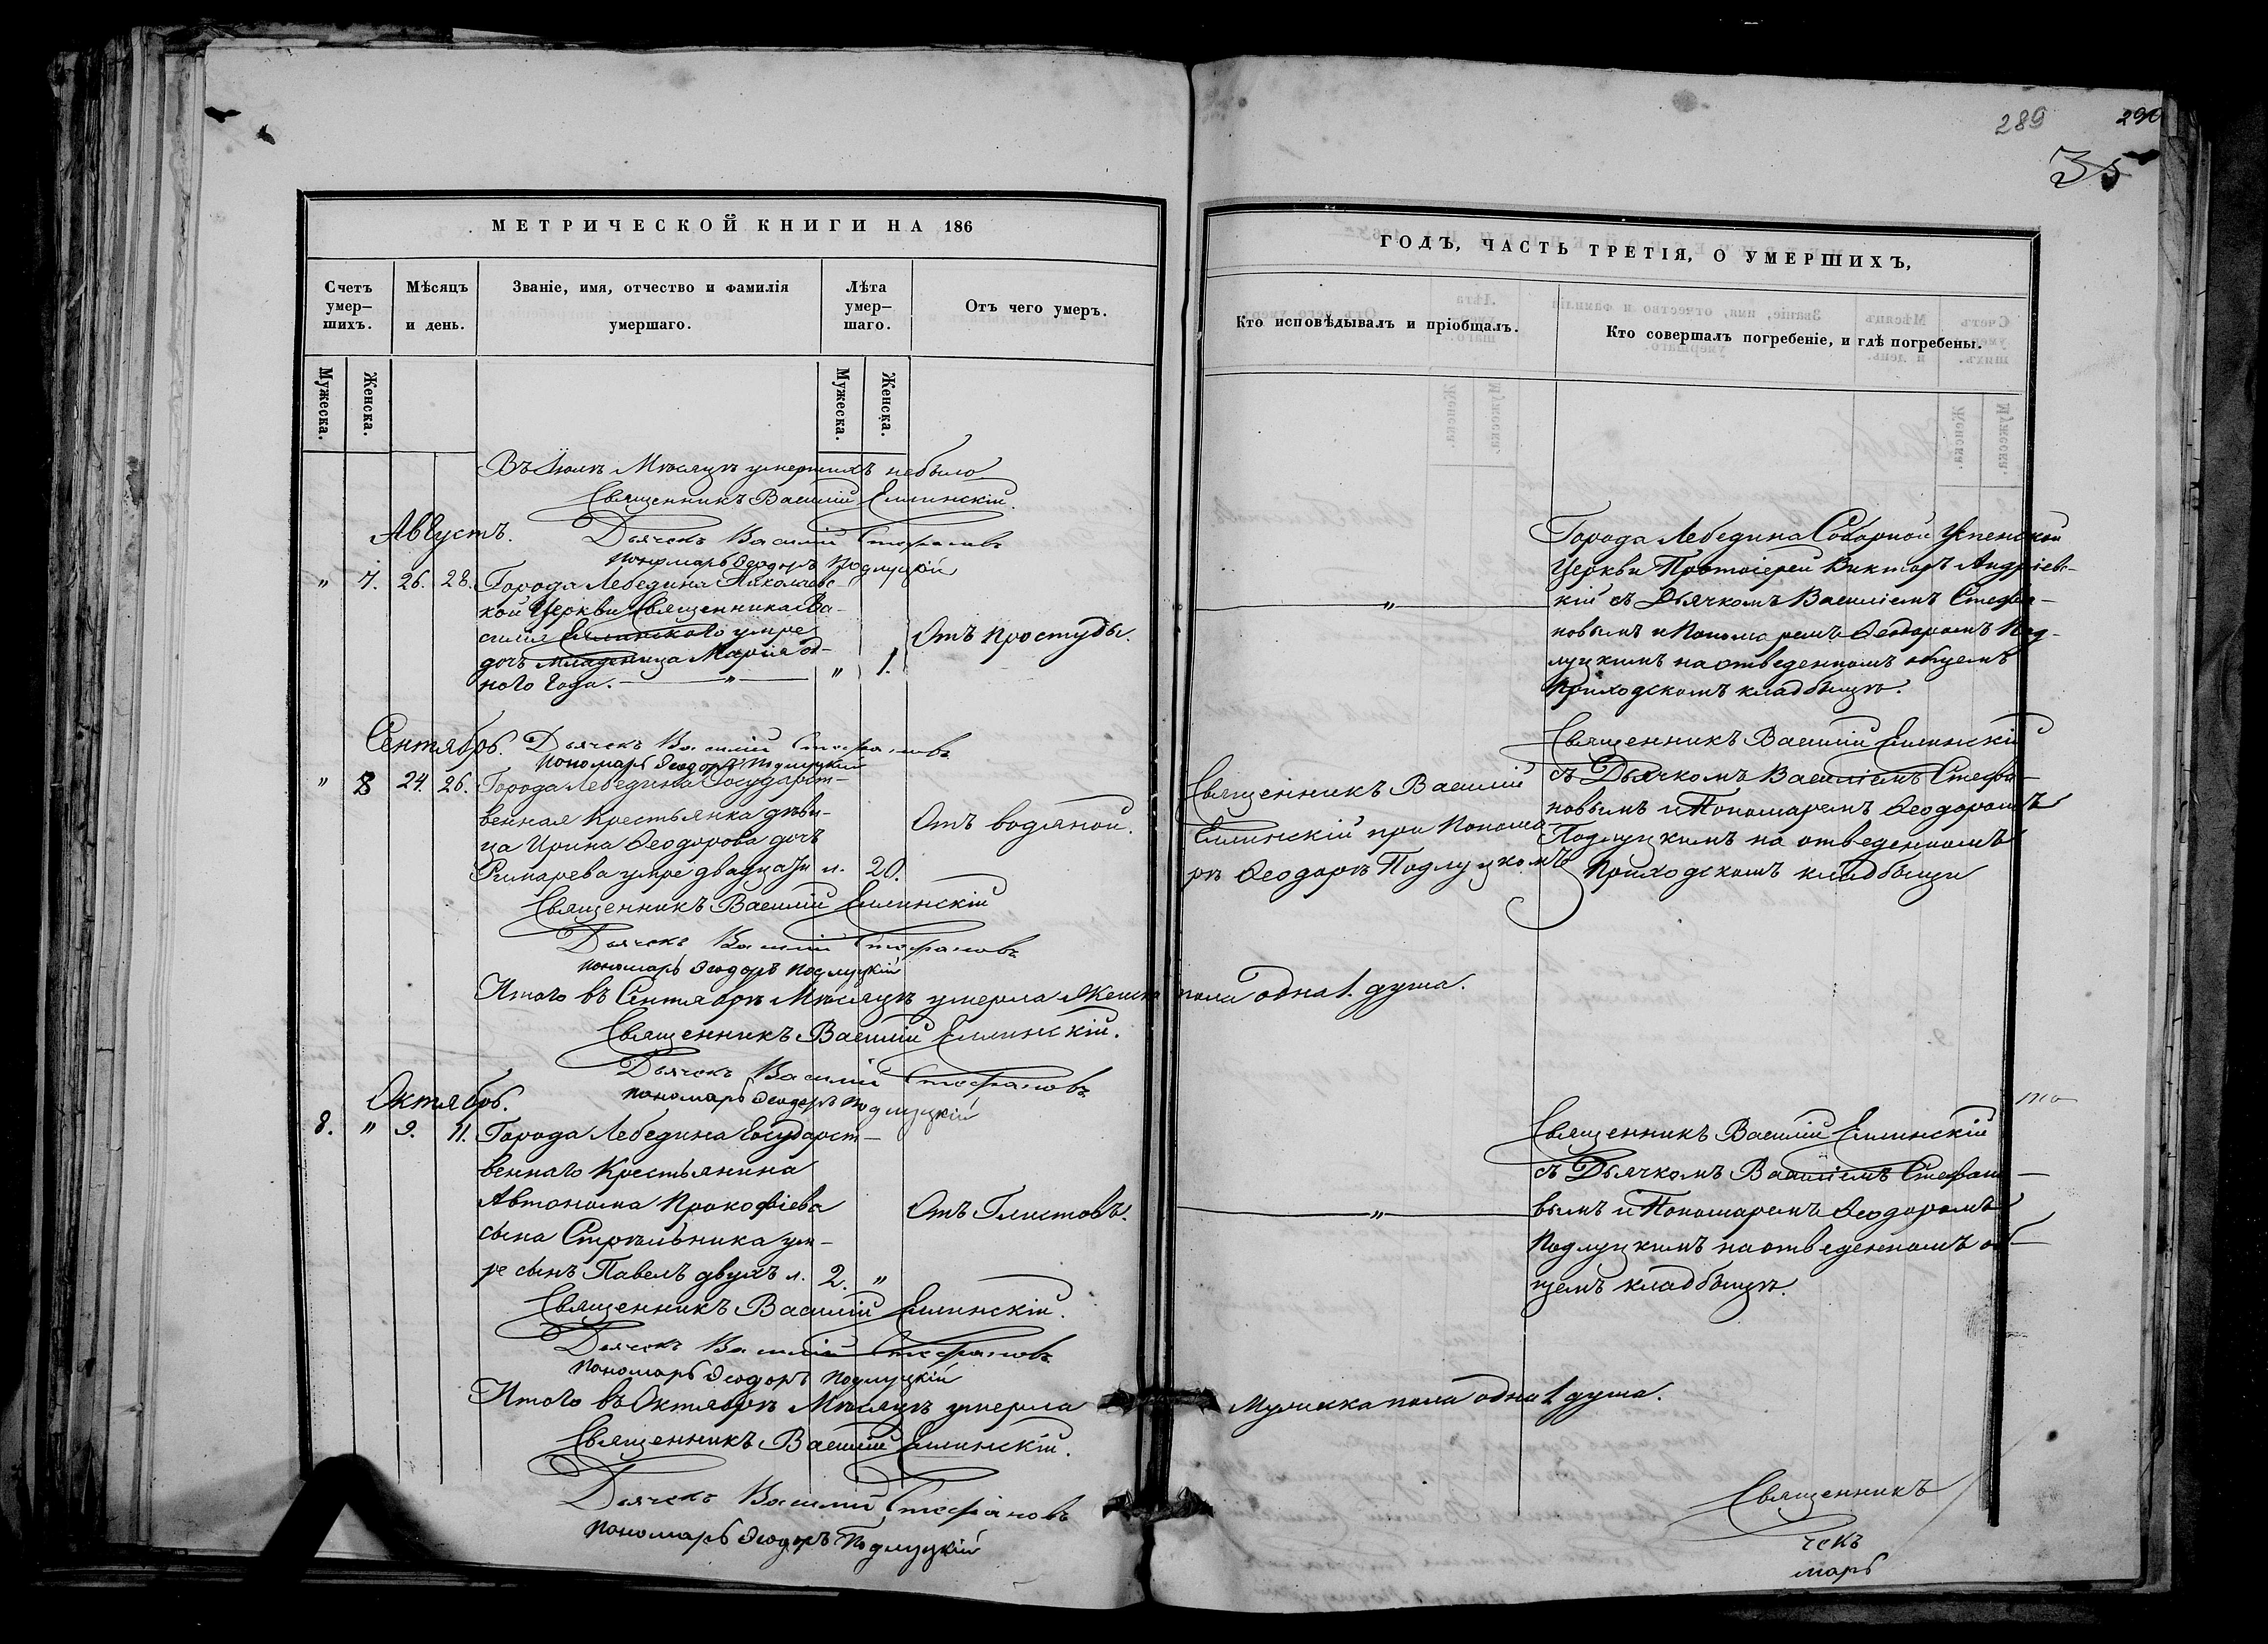 МЕТРИЧЕСКОЙ КНИГИ НА 186
Счетъ умер-шихъ.
Мѣсяцъ и день.
Званіе, имя, отчество и фамилія умершаго.
Лѣта умер-шаго.
Отъ чего умеръ.
Мужеска.
Женска.
Мужеска.
Женска.
Въ Іюлѣ Мѣсяцѣ умершихъ небыло
Священникъ Василій Еллинскій.
Августъ.
Дьячекъ Василій Стефановъ
Пономарь Ѳеодоръ Подлуцкій
" 7. 26. 28. Города Лебедина Николаевс-
кой Церкви Священника Ва-
силія Еллинского умре
дочь младеница Марія од-
ного года. " " 1.
Отъ простуды.
Сентябрь.
Дьячекъ Василій Стефановъ
Пономарь Ѳеодоръ Подлуцкій
" 8 24. 26. Города Лебедина Государст-
венная Крестьянка дѣви-
ца Ирина Ѳеодорова дочь
Римарева умре двадцати л. 20.
Отъ водяной.
Священникъ Василій Еллинскій
Дьячекъ Василій Стефановъ
Пономарь Ѳеодоръ Подлуцкій
Итого въ Сентябрѣ Мѣсяцѣ умерла Женска пола одна 1. душа.
Священникъ Василій Еллинскій.
Дьячекъ Василій Стефановъ
Пономарь Ѳеодоръ Подлуцкій
Октябрь.
8. " 9. 11. Города Лебедина Государст-
веннаго Крестьянина
Автонома Прокофіева
сына Стрѣльника ум-
ре сынъ Павелъ двухъ л. 2. "
Отъ Глистовъ.
Священникъ Василій Еллинскій.
Дьячекъ Василій Стефановъ
Пономарь Ѳеодоръ Подлуцкій
Итого въ Октябрѣ Мѣсяцѣ умерла Мужеска пола одна 1 душа.
Священникъ Василій Еллинскій.
Дьячекъ Василій Стефановъ
Пономарь Ѳеодоръ Подлуцкій
289
290
35
ГОДЪ, ЧАСТЬ ТРЕТІЯ, О УМЕРШИХЪ,
Кто исповѣдывалъ и пріобщалъ.
Кто совершалъ погребеніе, и гдѣ погребены.
"
Города Лебедина Соборной Успенской
Церкви Протоіерей Викторъ Андріевс-
кій съ Дьячкомъ Василіемъ Стефа-
новымъ и Пономаремъ Ѳеодоромъ Под-
луцкимъ на отведенномъ общемъ
Приходскомъ кладбищѣ.
Священникъ Василій
Еллинскій при Понома-
рѣ Ѳеодорѣ Подлуцкомъ
Священникъ Василій Еллинскій
съ Дьячкомъ Василіемъ Стефа-
новымъ и Пономаремъ Ѳеодоромъ
Подлуцкимъ на отведенномъ
Приходскомъ кладбищи
"
Священникъ Василій Еллинскій
съ Дьячкомъ Василіемъ Стефано-
вымъ и Пономаремъ Ѳеодоромъ
Подлуцкимъ на отведенномъ об-
щемъ кладбищѣ.
Священникъ
чекъ
марь